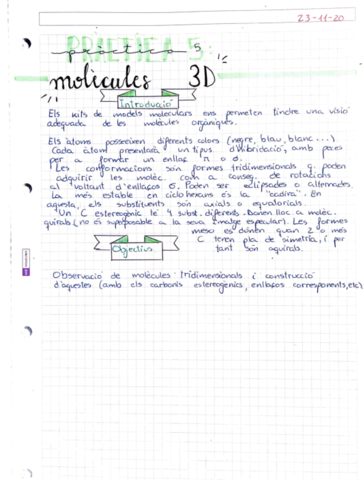 23-11-20
PRÀCTICA 5:
pràctica 5
molècules 3D
Introducció
Els kits de models moleculars ens permeten tindre una visió
adequada de les molècules orgàniques.
Els àtoms posseeixen diferents colors (negre, blau, blanc...).
Cada àtom presentarà un tipus d'hibridació, amb peces
per a formar un enllaç π o σ.
Les conformacions són formes tridimensionals q. poden
adquirir les molèc. com a conseq. de rotacions
al voltant d'enllaços σ. Poden ser eclipsades o alternades.
La més estable en ciclohexans és la "cadira". En
aquesta, els substituents són axials o equatorials.
Un C estereogènic té 4 subst. diferents. Donen lloc a molèc.
quirals (no és superposable a la seva imatge especular). Les formes
meso es donen quan 2 o més
C tenen pla de simetria, i per
tant són aquirals.
Objectius
Observació de molècules tridimensionals i construcció
d'aquestes (amb els carbonis estereogènics, enllaços corresponents, etc)